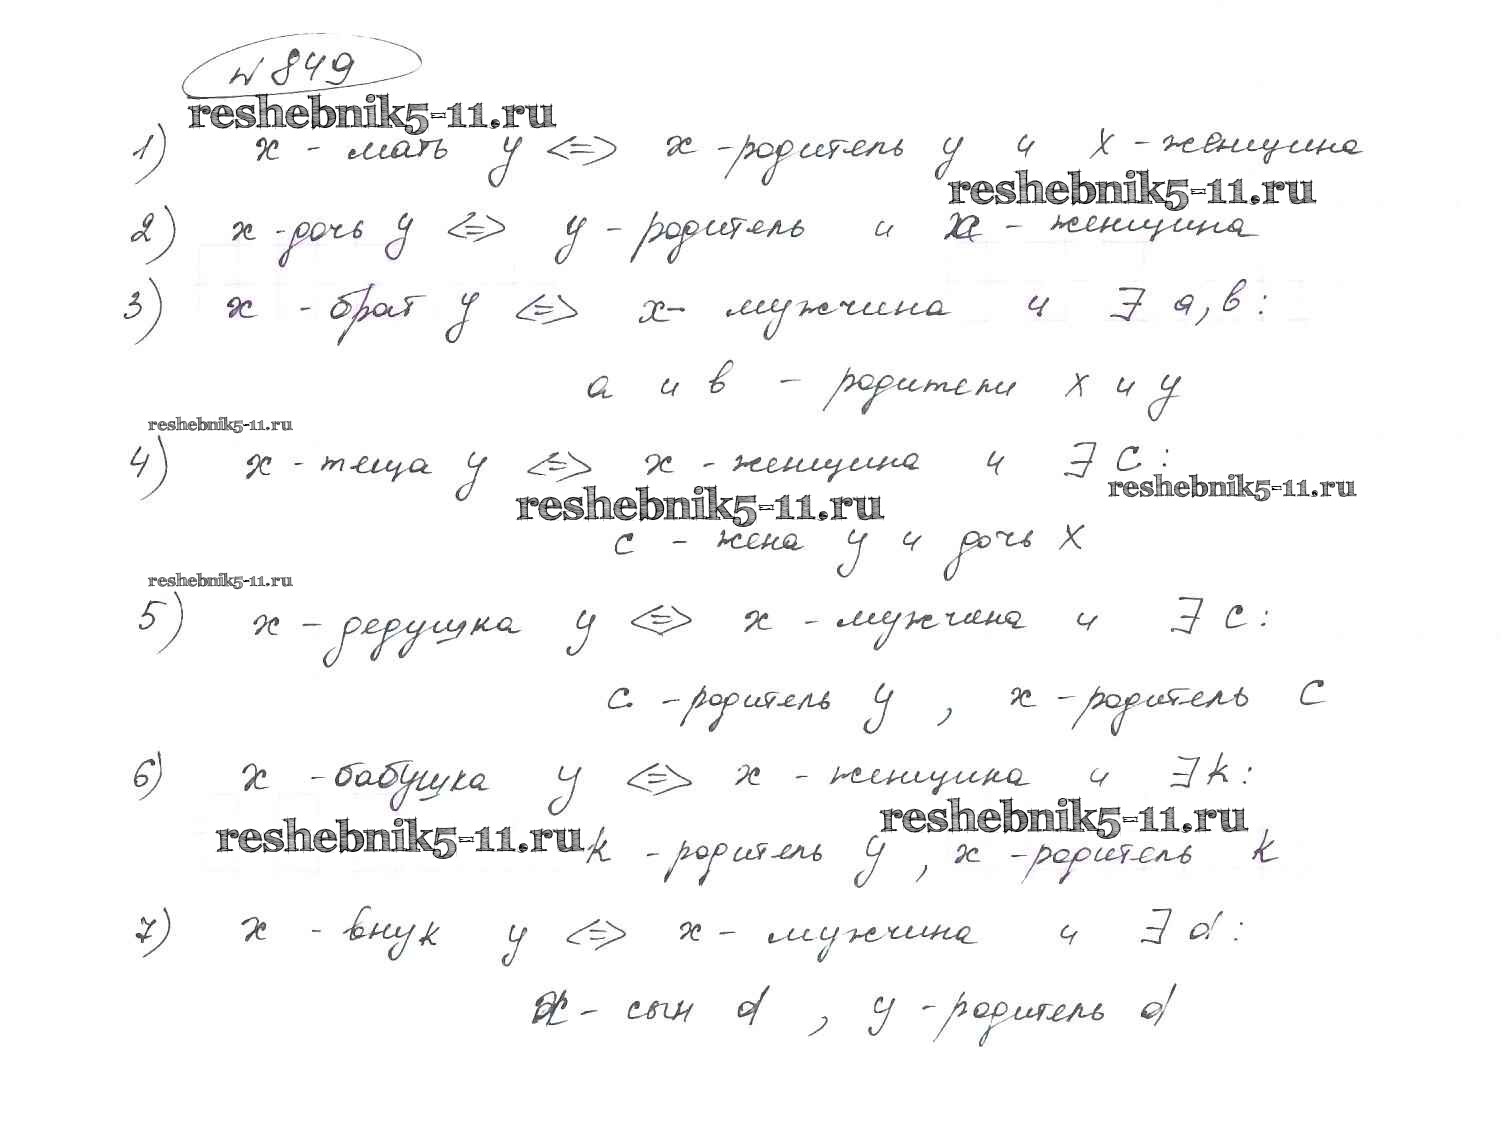 № 849
reshebnik5-11.ru
1) x - мать y <=> x - родитель y и x - женщина
reshebnik5-11.ru
2) x - дочь y <=> y - родитель и x - женщина
3) x - брат y <=> x - мужчина и ∃ a, b :
a и b - родители x и y
reshebnik5-11.ru
4) x - теща y <=> x - женщина и ∃ c :
reshebnik5-11.ru
reshebnik5-11.ru
c - жена y и дочь x
reshebnik5-11.ru
5) x - дедушка y <=> x - мужчина и ∃ c :
c - родитель y , x - родитель c
6) x - бабушка y <=> x - женщина и ∃ k :
reshebnik5-11.ru
reshebnik5-11.ru
k - родитель y , x - родитель k
7) x - внук y <=> x - мужчина и ∃ d :
x - сын d , y - родитель d